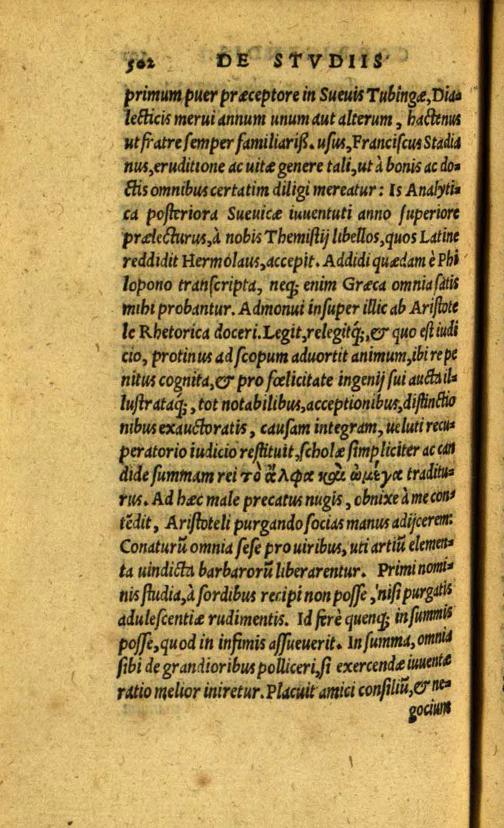 502 DE STVDIIS
primum puer præceptore in Sueuis Tubingæ, Dia-
lecticis merui annum unum aut alterum, hactenus
ut fratre semper familiariß. usus, Franciscus Stadia
nus, eruditione ac uitæ genere tali, ut à bonis ac do-
ctis omnibus certatim diligi mereatur: Is Analyti-
ca posteriora Sueuicæ iuuentuti anno superiore
prælecturus, à nobis Themistij libellos, quos Latine
reddidit Hermolaus, accepit. Addidi quædam è Phi
lopono transcripta, neq; enim Græca omnia satis
mihi probantur. Admonui insuper illic ab Aristote
le Rhetorica doceri. Legit, relegitq́;, & quo est iudi
cio, protinus ad scopum aduortit animum, ibi re pe
nitus cognita, & pro fœlicitate ingenij sui aucta il-
lustrataq́;, tot notabilibus, acceptionibus, distinctio
nibus exauctoratis, causam integram, ueluti recu-
peratorio iudicio restituit, scholæ simpliciter ac can
dide summam rei τὸ ἄλφα καὶ ὠμέγα traditu-
rus. Ad hæc male precatus nugis, obnixe à me con-
tẽdit, Aristoteli purgando socias manus adijcerem:
Conaturũ omnia sese pro uiribus, uti artiũ elemen-
ta uindicta barbarorũ liberarentur. Primi nomi-
nis studia, à sordibus recipi non posse, nisi purgatis
adulescentiæ rudimentis. Id ferè quenq; in summis
posse, quod in infimis assueuerit. In summa, omnia
sibi de grandioribus polliceri, si exercendæ iuuentæ
ratio melior iniretur. Placuit amici consiliũ, & ne-
gocium